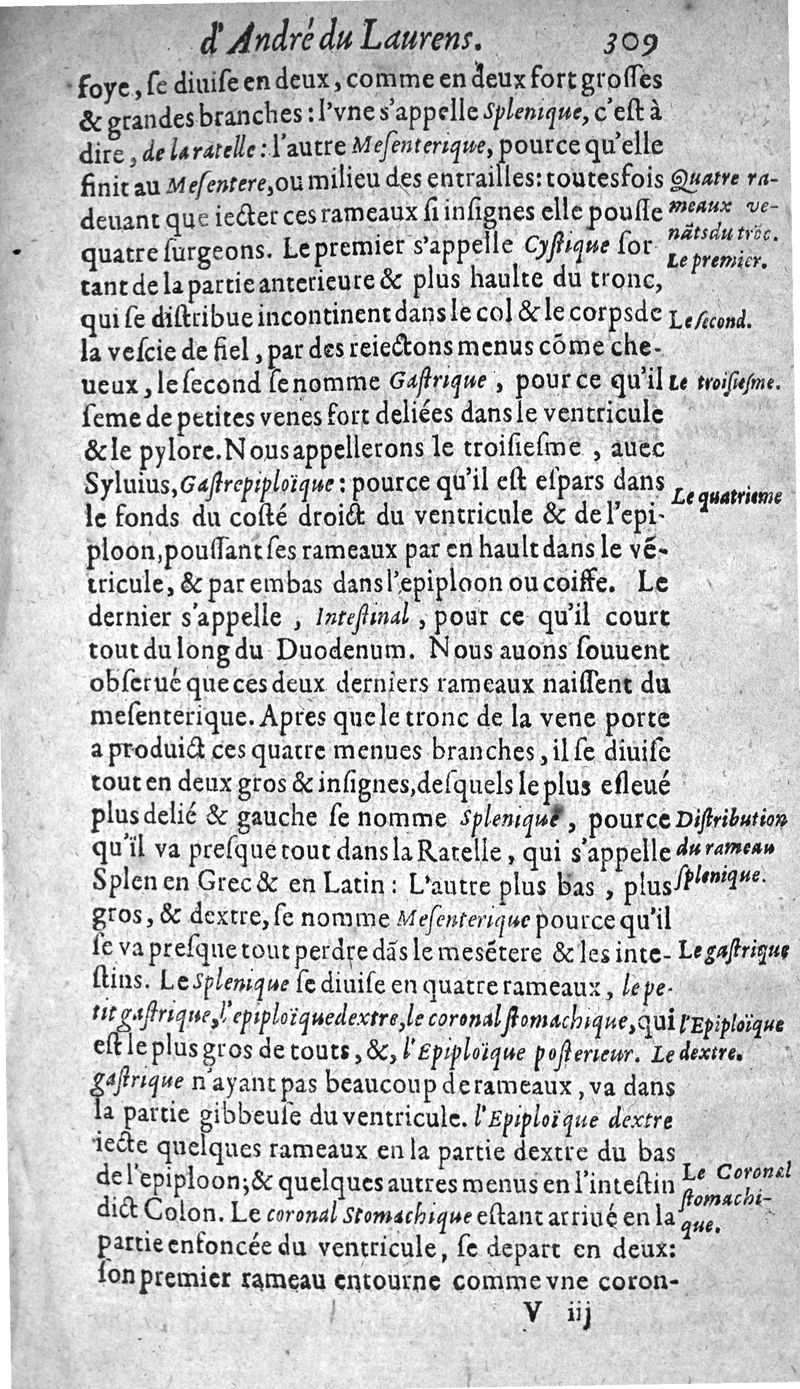 d'André du Laurens. 309
foye, ſe diuiſe en deux, comme en deux fort groſſes
& grandes branches : l'vne s'appelle Splenique, c'eſt à
dire, de la ratelle : l'autre Meſenterique, pource qu'elle
finit au Meſentere, ou milieu des entrailles: toutesfois
deuant que iecter ces rameaux ſi inſignes elle pouſſe
quatre ſurgeons. Le premier s'appelle Cyſtique ſor
tant de la partie anterieure & plus haulte du tronc,
qui ſe diſtribue incontinent dans le col & le corps de
la veſcie de fiel, par des reiectons menus cõme che-
ueux, le second ſe nomme Gaſtrique, pour ce qu'il
ſeme de petites venes fort deliées dans le ventricule
& le pylore. Nous appellerons le troiſieſme, auec
Syluius, Gaſtrepiploïque : pource qu'il eſt eſpars dans
le fonds du coſté droict du ventricule & de l'epi-
ploon, pouſſant ſes rameaux par en hault dans le vẽ-
tricule, & par embas dans l'epiploon ou coiffe. Le
dernier s'appelle, Inteſtinal, pour ce qu'il court
tout du long du Duodenum. Nous auons ſouuent
obſerué que ces deux derniers rameaux naiſſent du
meſenterique. Apres que le tronc de la vene porte
a produict ces quatre menues branches, il ſe diuiſe
tout en deux gros & inſignes, deſquels le plus eſleué
plus delié & gauche ſe nomme Splenique, pource
qu'il va preſque tout dans la Ratelle, qui s'appelle
Splen en Grec & en Latin : L'autre plus bas, plus
gros, & dextre, ſe nomme Meſenterique pource qu'il
ſe va preſque tout perdre dãs le mesẽtere & les inte-
ſtins. Le Splenique ſe diuiſe en quatre rameaux, le pe-
tit gaſtrique, l'epiploïque dextre, le coronal ſtomachique, qui
eſt le plus gros de touts, &, l'Epiploïque poſterieur. Le
gaſtrique n'ayant pas beaucoup de rameaux, va dans
la partie gibbeuſe du ventricule. l'Epiploïque dextre
iecte quelques rameaux en la partie dextre du bas
de l'epiploon; & quelques autres menus en l'inteſtin
dict Colon. Le coronal Stomachique eſtant arriué en la
partie enfoncée du ventricule, ſe depart en deux:
ſon premier rameau entourne comme vne coron-
V iij
Quatre ra-
meaux ve-
nãts du trõc.
Le premier.
Le ſecond.
Le troiſieſme.
Le quatrieme
Diſtribution
du rameau
ſplenique.
Le gaſtrique
l'Epiploïque
dextre.
Le Coronal
ſtomachi-
que.